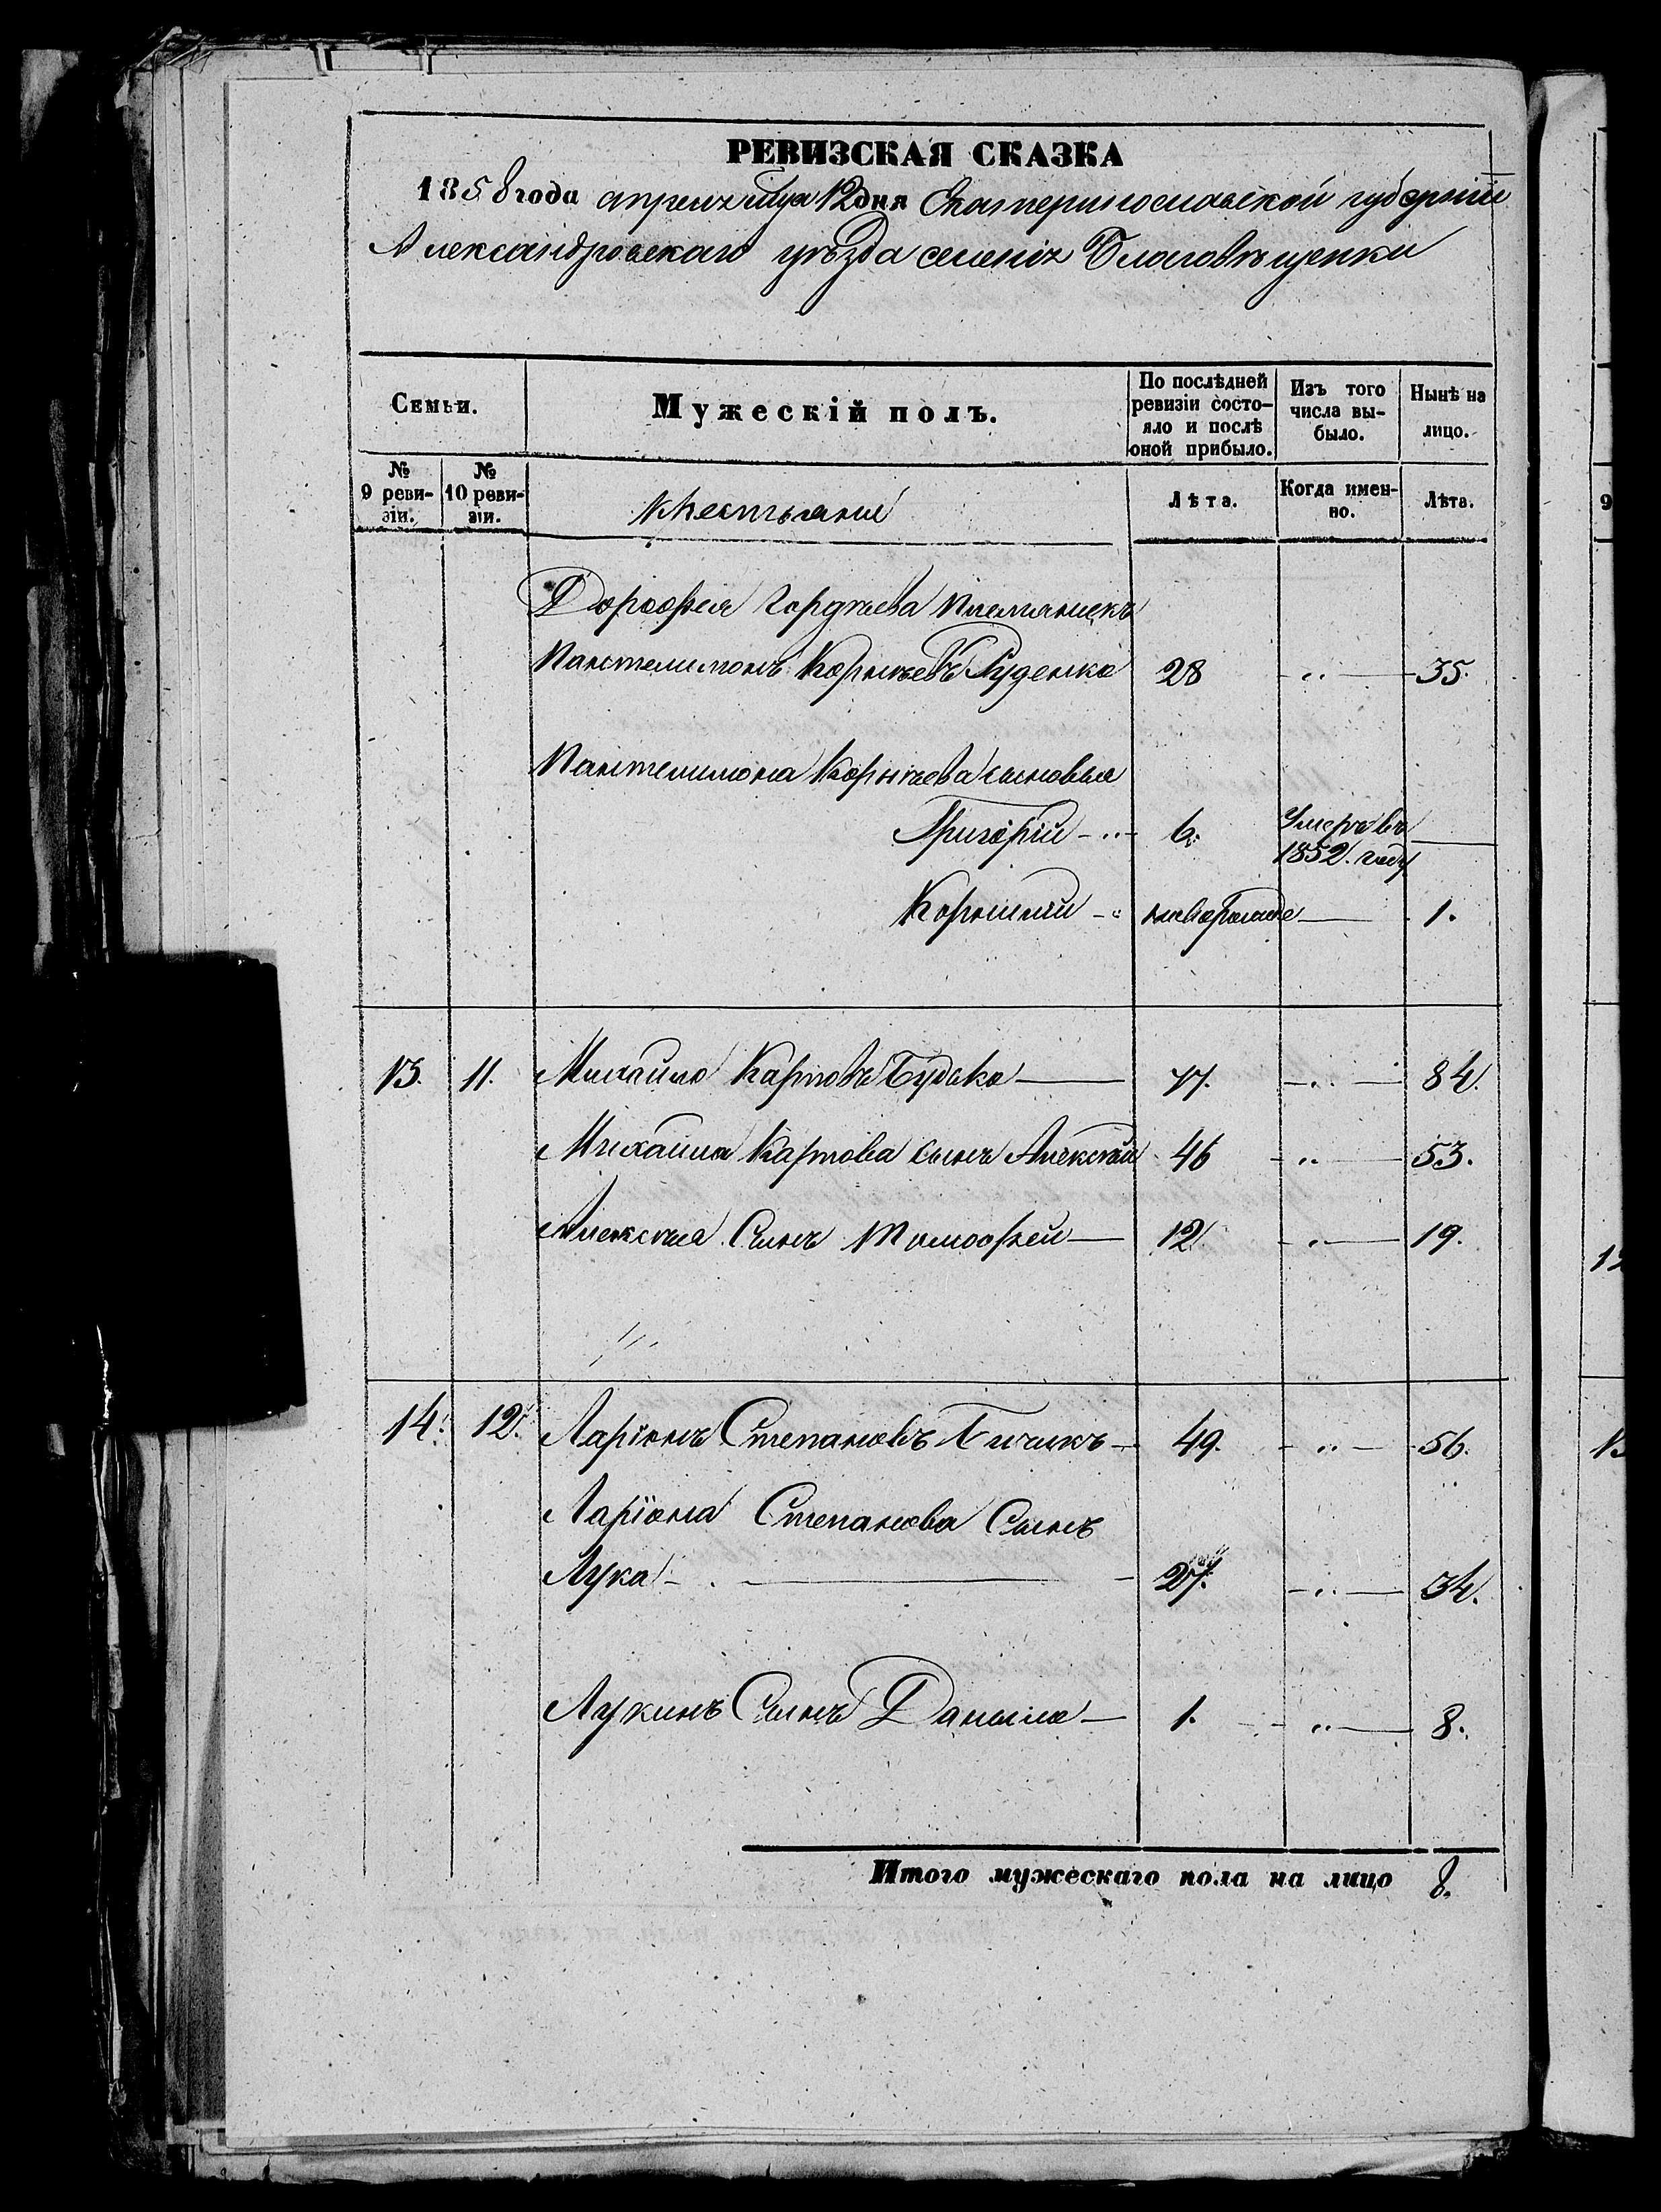 РЕВИЗСКАЯ СКАЗКА
1858 года апреля 12 дня Екатеринославской губернии
Александровскаго уѣзда селенія Благовѣщенки
Семьи.
Мужескій полъ.
По послѣдней ревизіи состо-
яло и послѣ
оной прибыло.
Изъ того
числа вы-
было.
Нынѣ на
лицо.
№
9 реви-
зіи.
№
10 реви-
зіи.
Крестьяне
Лѣта.
Когда имен-
но.
Лѣта.
Дорофея Гордѣева племянникъ
Пантелимонъ Корнѣевъ Руденко 28 " 35.
Пантелимона Корнѣева сыновья
Григорій - " - 6. Умеръ въ
1852. году
Корнилій - " 1.
13. 11. Михайло Карповъ Будько 77. - " - 84.
Михайла Карпова сынъ Алексѣй 46 - " - 53.
Алексѣя Сынъ Тимофей 12 - " - 19.
14. 12. Ларіонъ Степановъ Бичикъ 49. - " - 56.
Ларіона Степанова Сынъ
Лука 27. - " - 34.
Лукинъ Сынъ Данило 1. - " - 8.
Итого мужескаго пола на лицо 8.